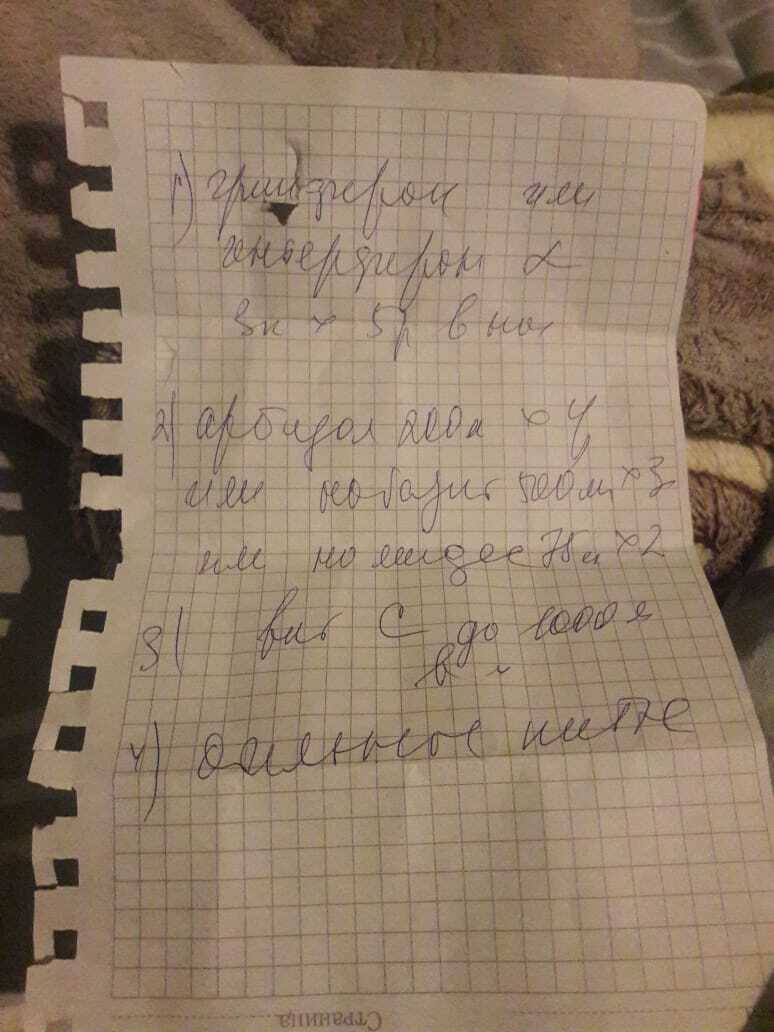 1) гриппферон или
генферон α
3к × 5р в нос
2) арбидол 200м × 4
или нобазит 500м × 3
или номидес 75м × 2
3) вит С до 1000
в
4) обильное питье
Страница